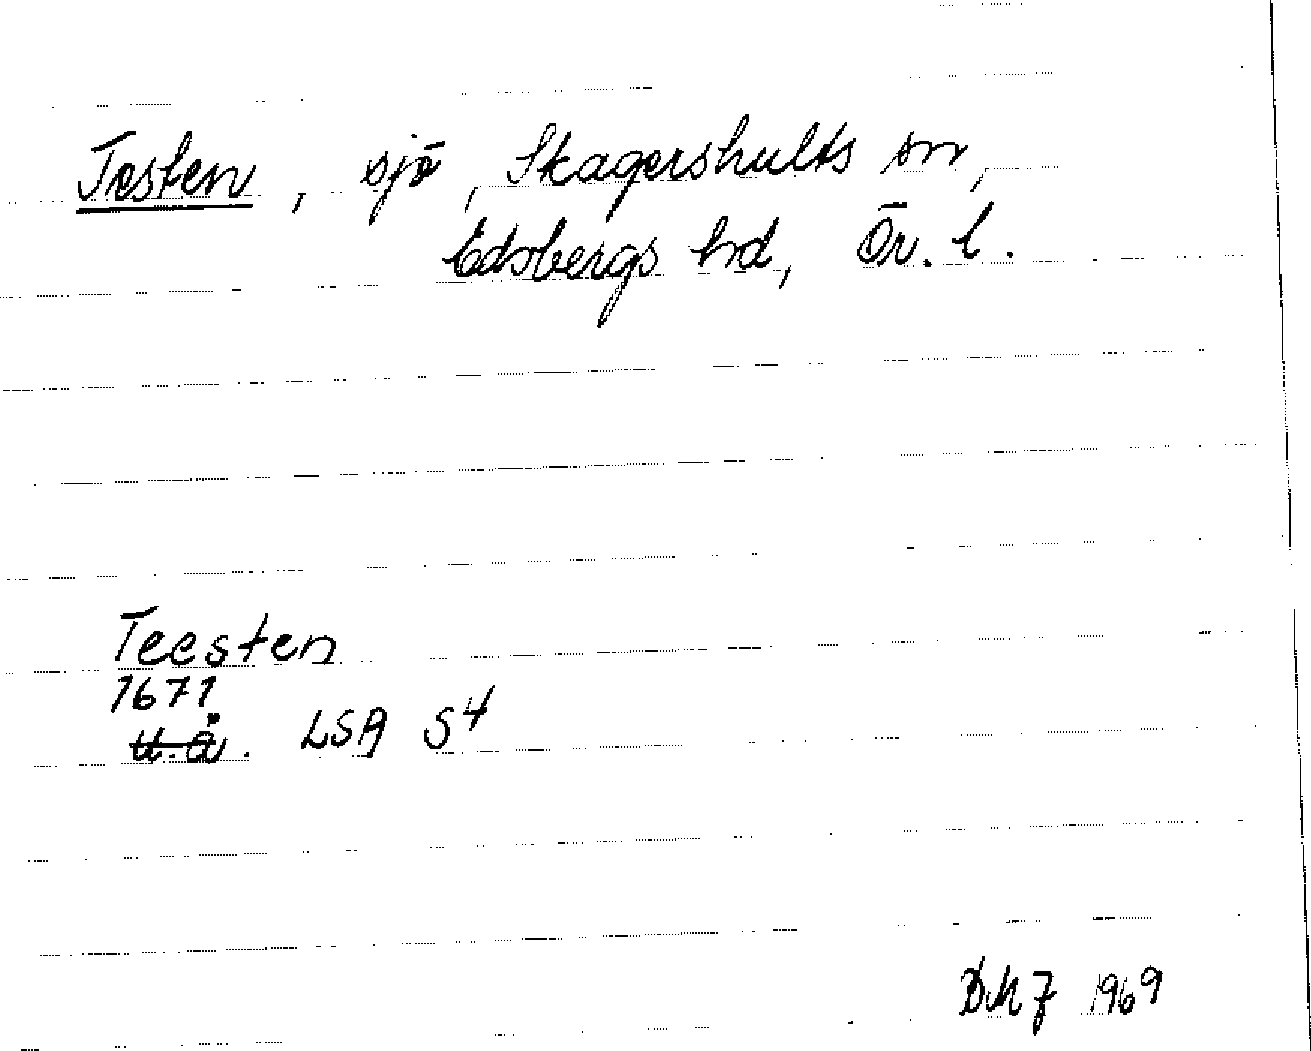 Testen, sjö, Skagershults sn,
Edsbergs hd, Ör. l.
Teesten
1671
u.å. LSA S4
DMJ 1969